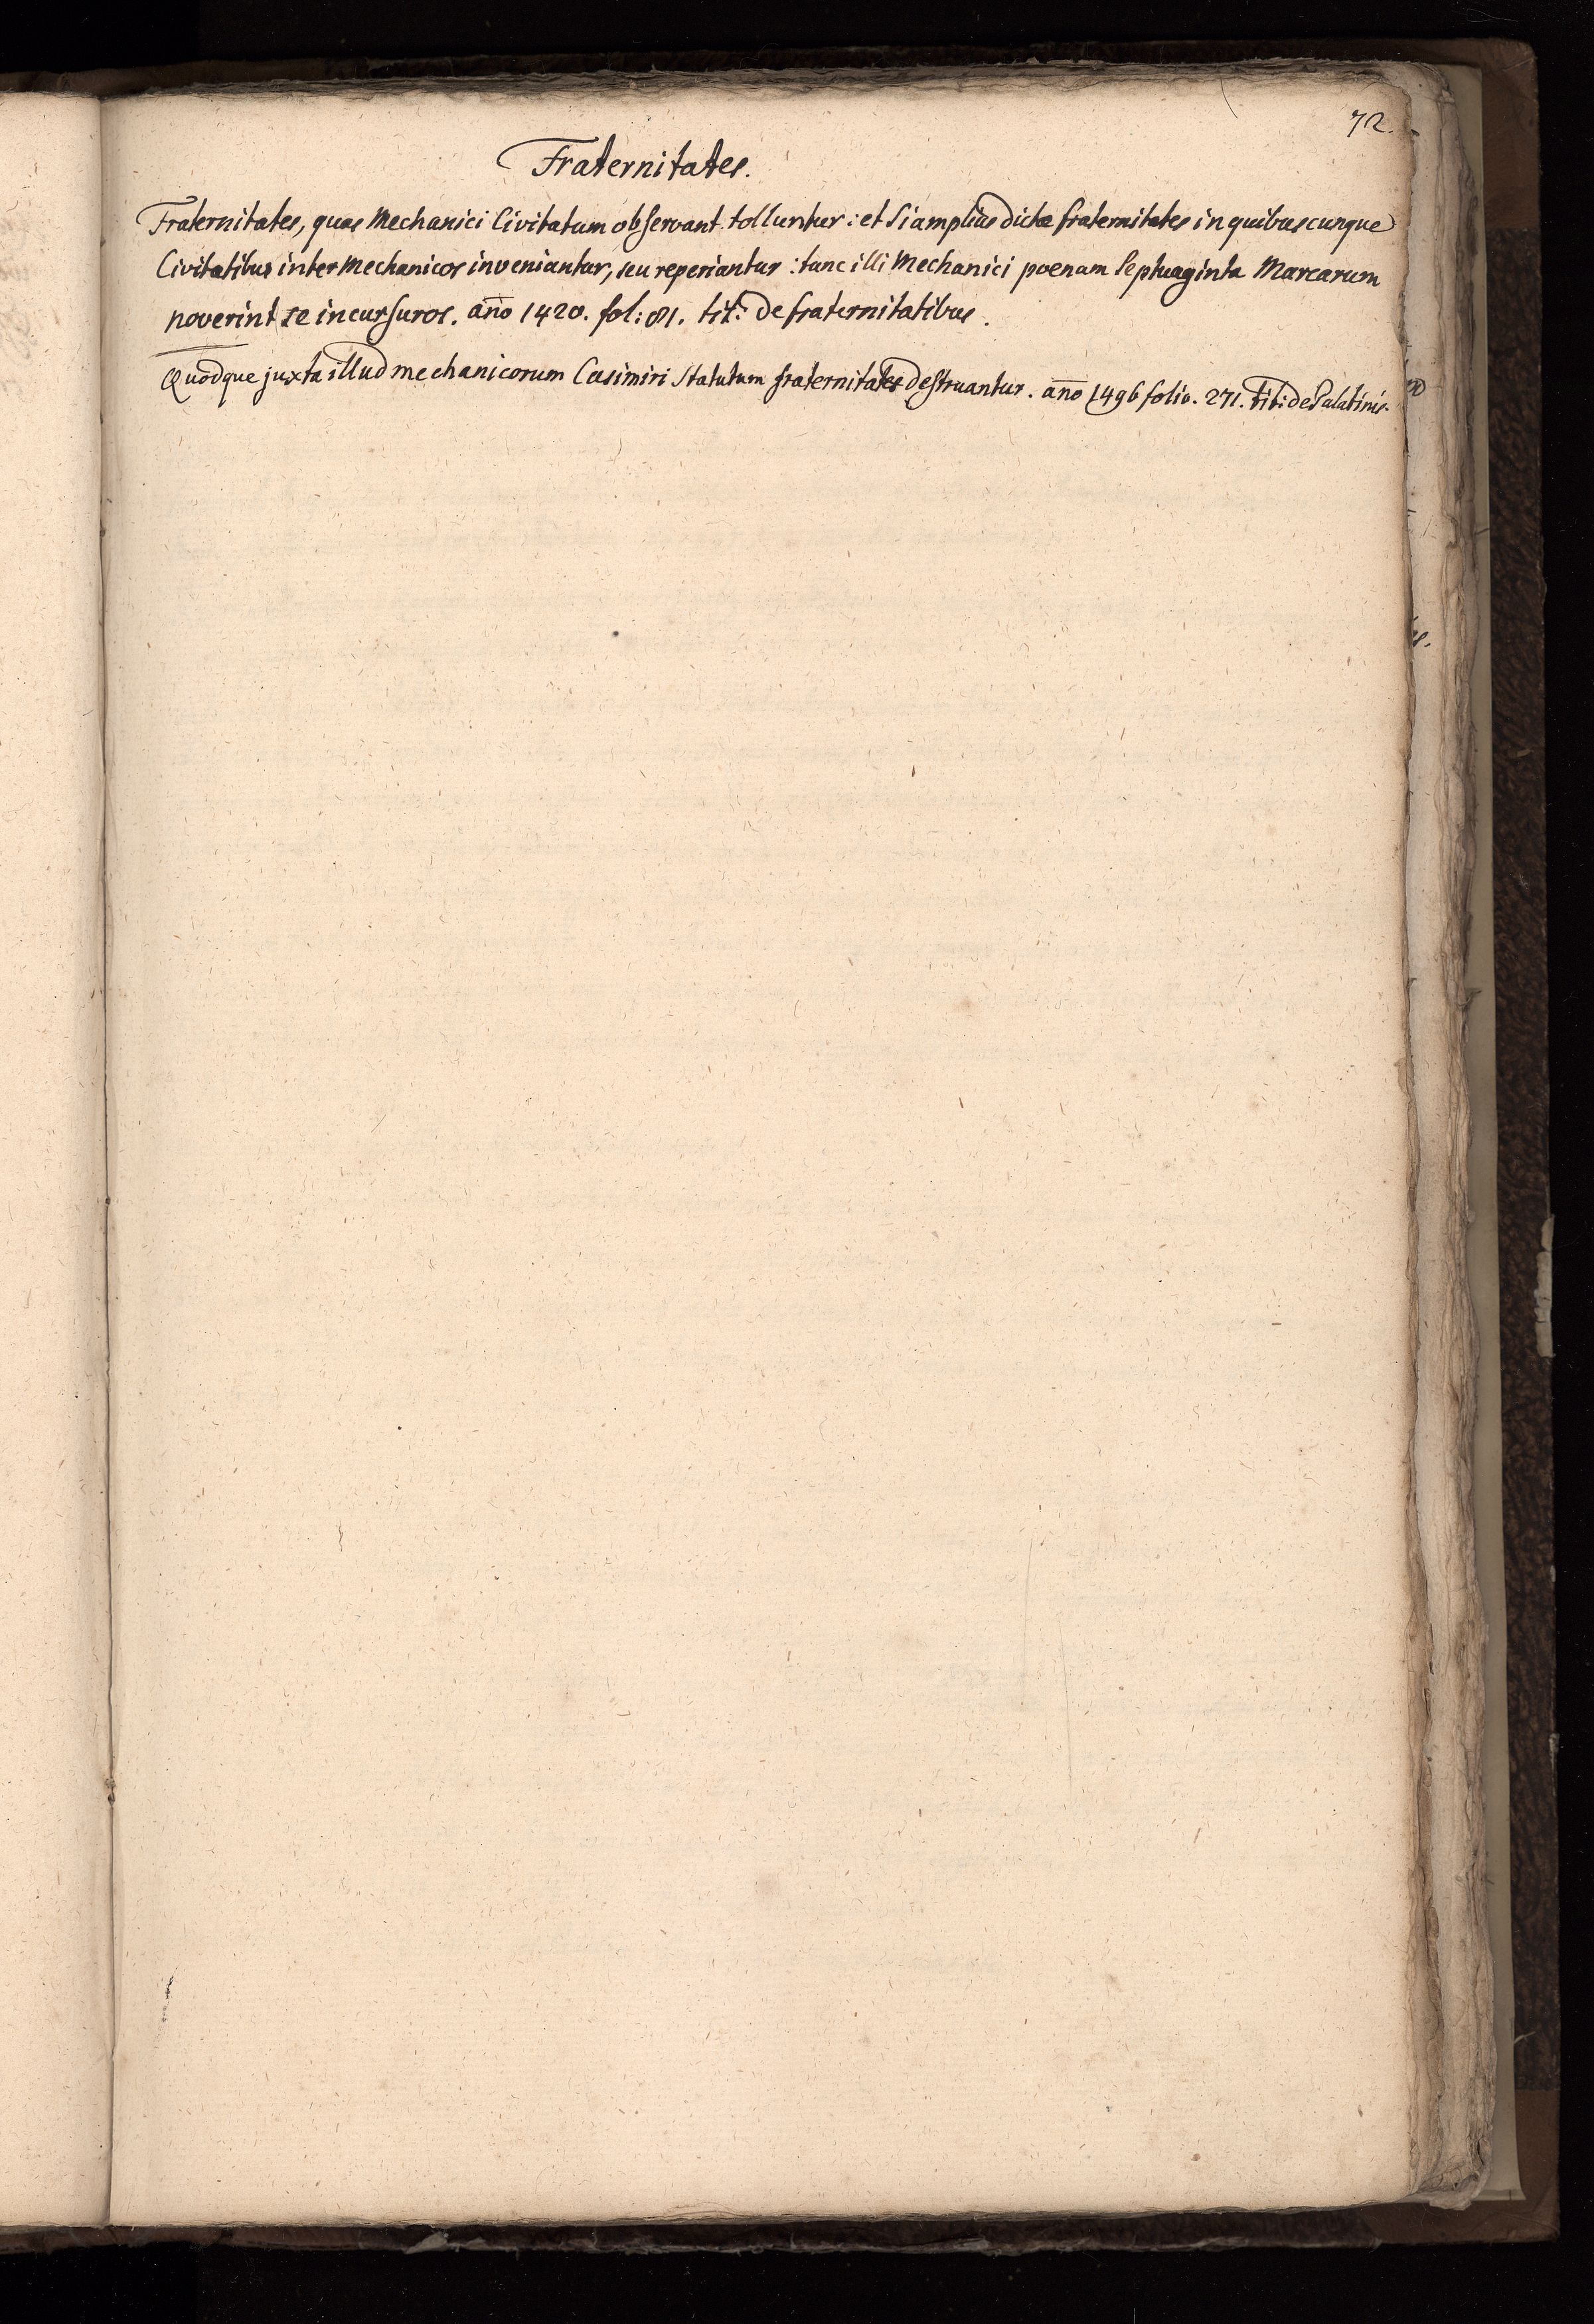 72.
Fraternitates.
Fraternitates, quas Mechanici Civitatum observant tolluntur: et si amplius dictæ fraternitates in quibuscunque
Civitatibus inter Mechanicos inveniantur, seu reperiantur: tunc illi Mechanici poenam septuaginta Marcarum
noverint se incursuros. año 1420. fol: 81. tit: de fraternitatibus.
Quodque juxta illud mechanicorum Casimiri Statutum fraternitates destruantur. año 1496 folio. 271. tit: de Palatinis.